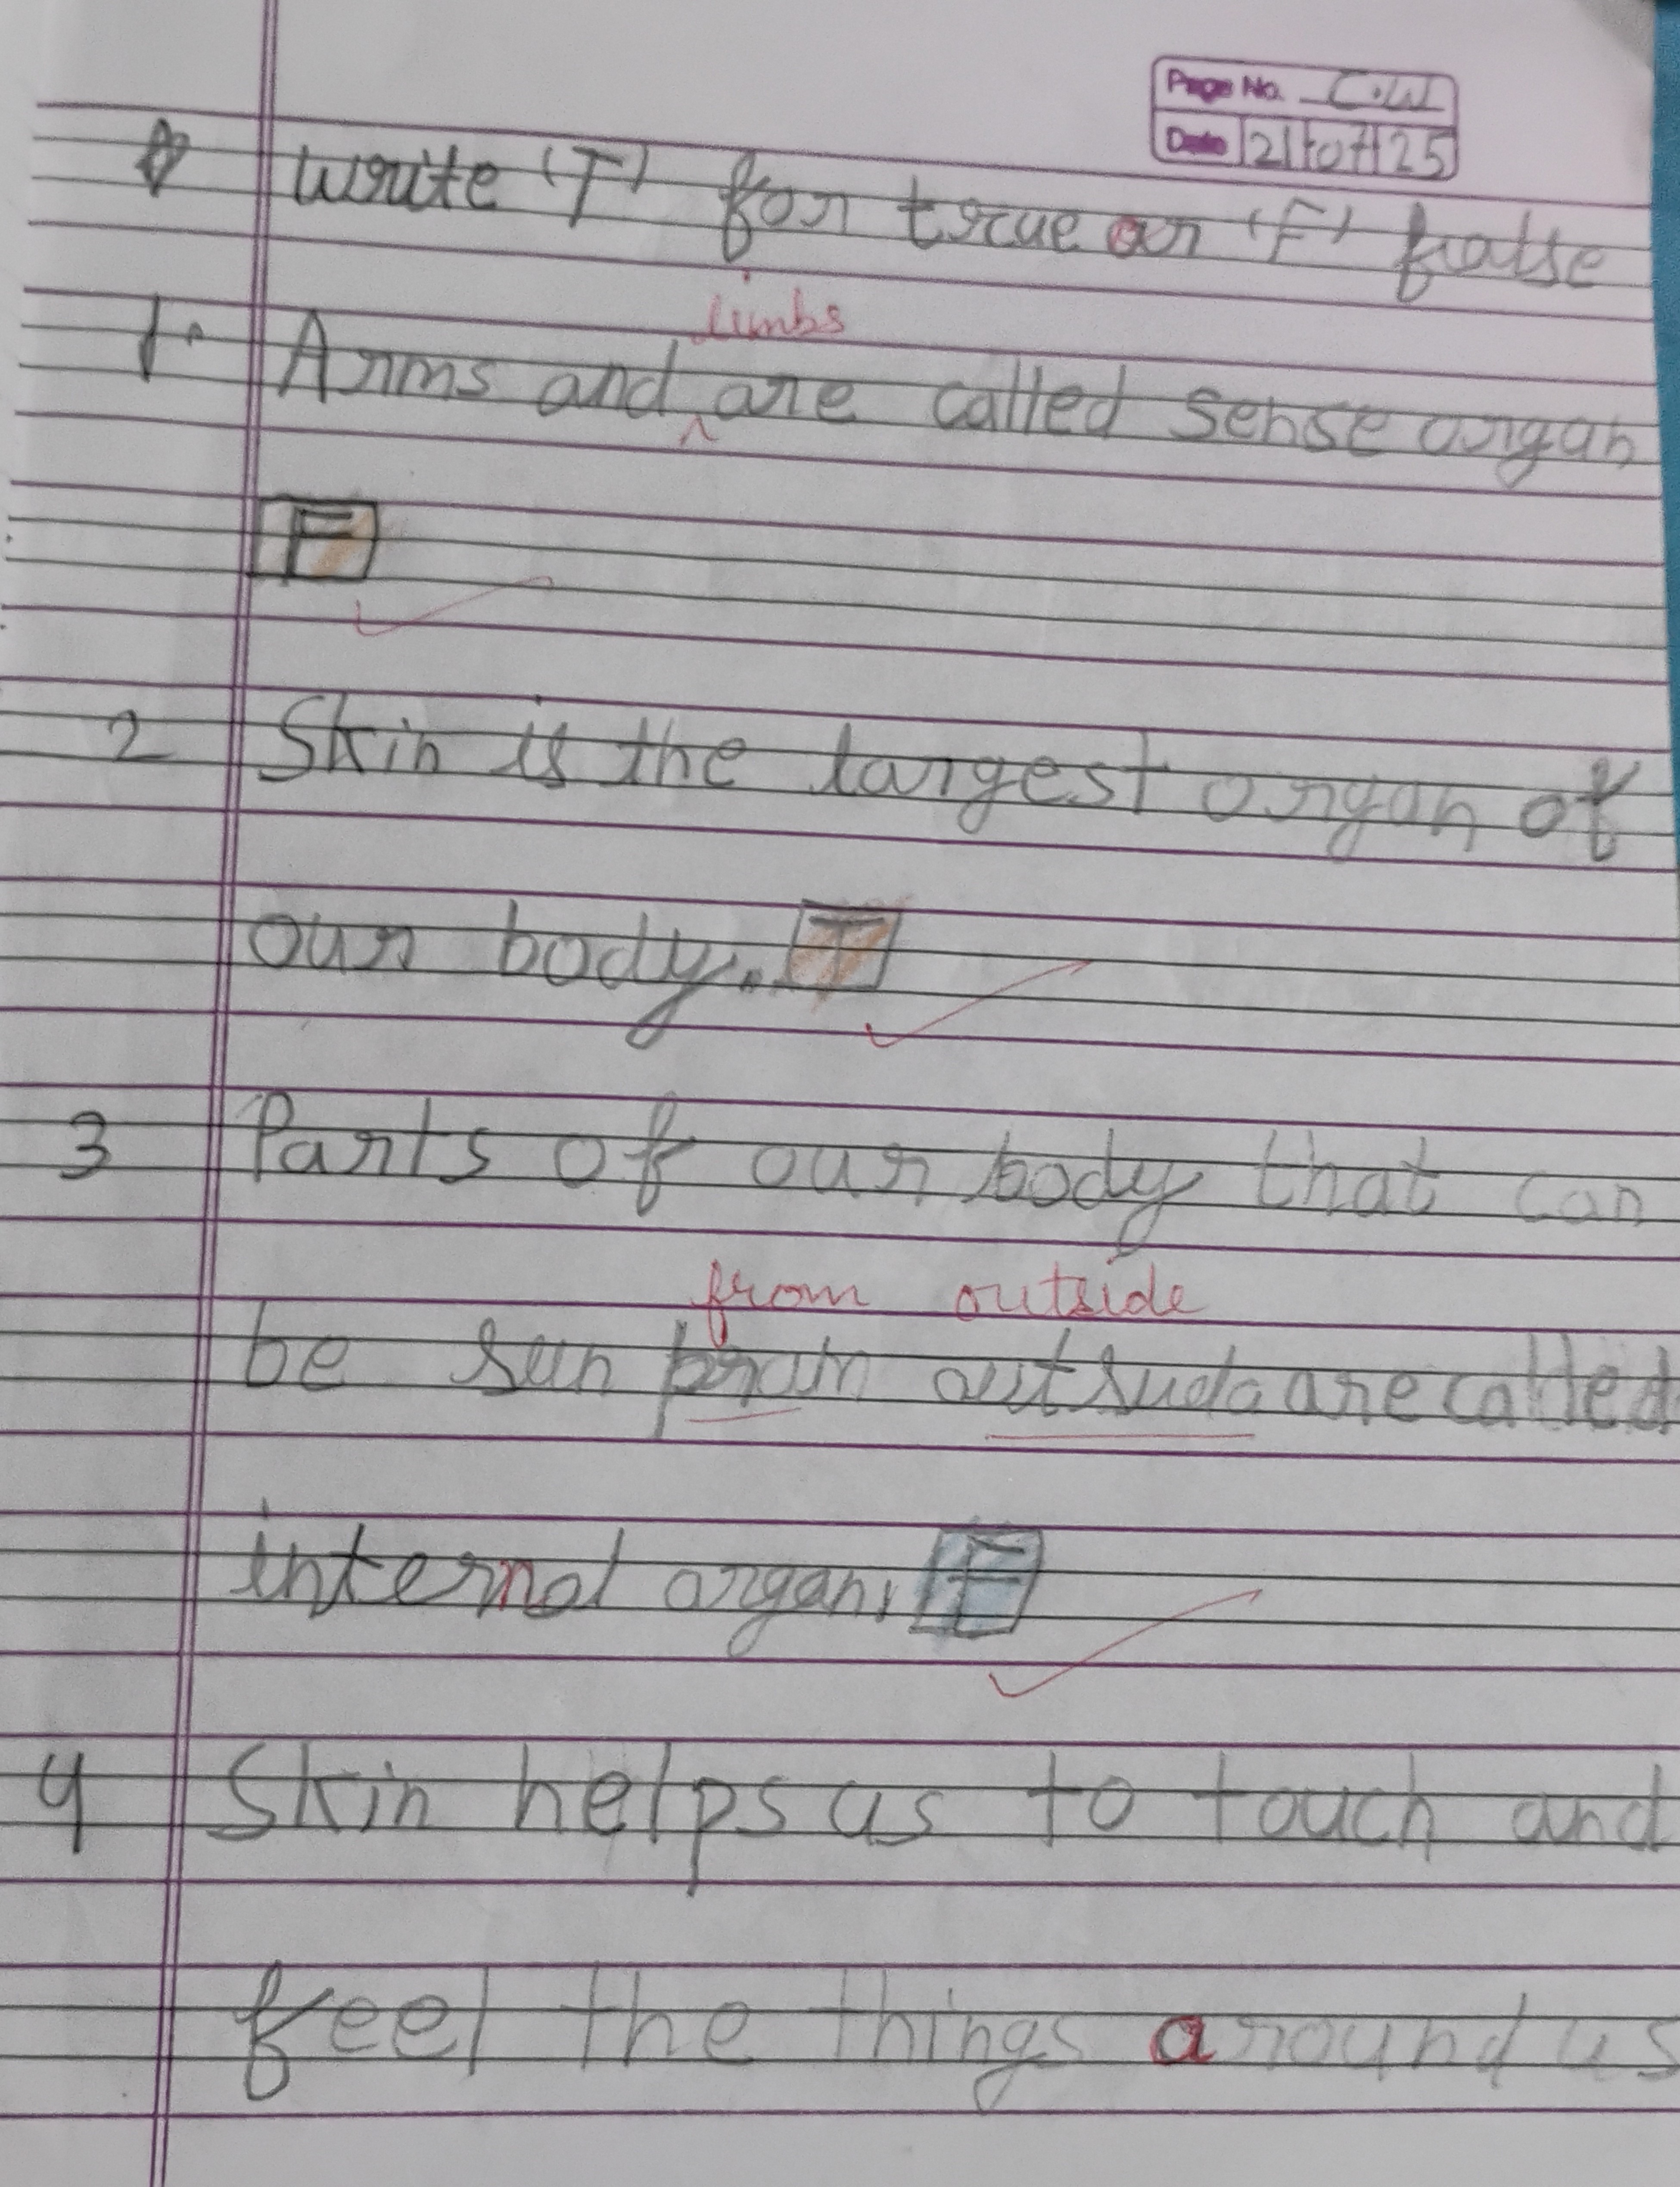 Page No. C.W
Date 21/07/25
Write 'T' for true or 'F' false
limbs
1. Arms and ^ are called sense organ
F
2 Skin is the largest organ of
our body. T
3 Parts of our body that can
from outside
be sun outsuda are called
internal organ. F
4 Skin helps us to touch and
feel the things around us